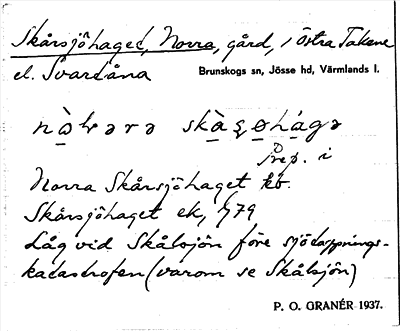 Skårsjöhaget, Norra, gård, i Östra Takene
el. Svartåna
Brunskogs sn, Jösse hd, Värmlands l.
Prep. i
Norra Skårsjöhaget kb.
Skårsjöhaget ek, 1/79
Låg vid Skålsjön före sjötappnings-
katastrofen (varom se Skålsjön)
P. O. GRANÉR 1937.